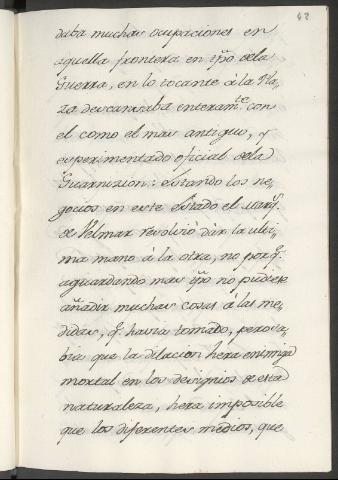 42
daba muchas ocupaciones en
aquella frontera en tpo. dela
Guerra, en lo tocante à la Pla,
za descansaba enteramte. con
el como el mas antiguo, y
experimentado oficial dela
Guarnizion: Estando los ne,
gocios en este estado el Marqs.
de Velmar resolvió dàr la ulti,
ma mano à la otra, no porq.
aguardando mas tpo no pudiese
añadir muchas cosas à las me,
didas, q. havia tomado, pero sa,
bia que la dilacion hera enimiga
mortal en los designios de esta
naturaleza, hera imposible
que los diferentes medios, que